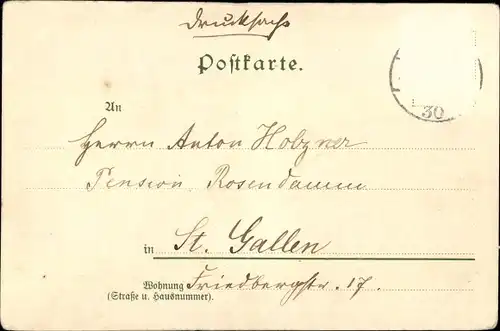 Drucksache
Postkarte.
30
An
Herrn Anton Holzner
Pension Rosendamm
in St. Gallen
Wohnung Friedbergstr. 17.
(Straße u. Hausnummer).